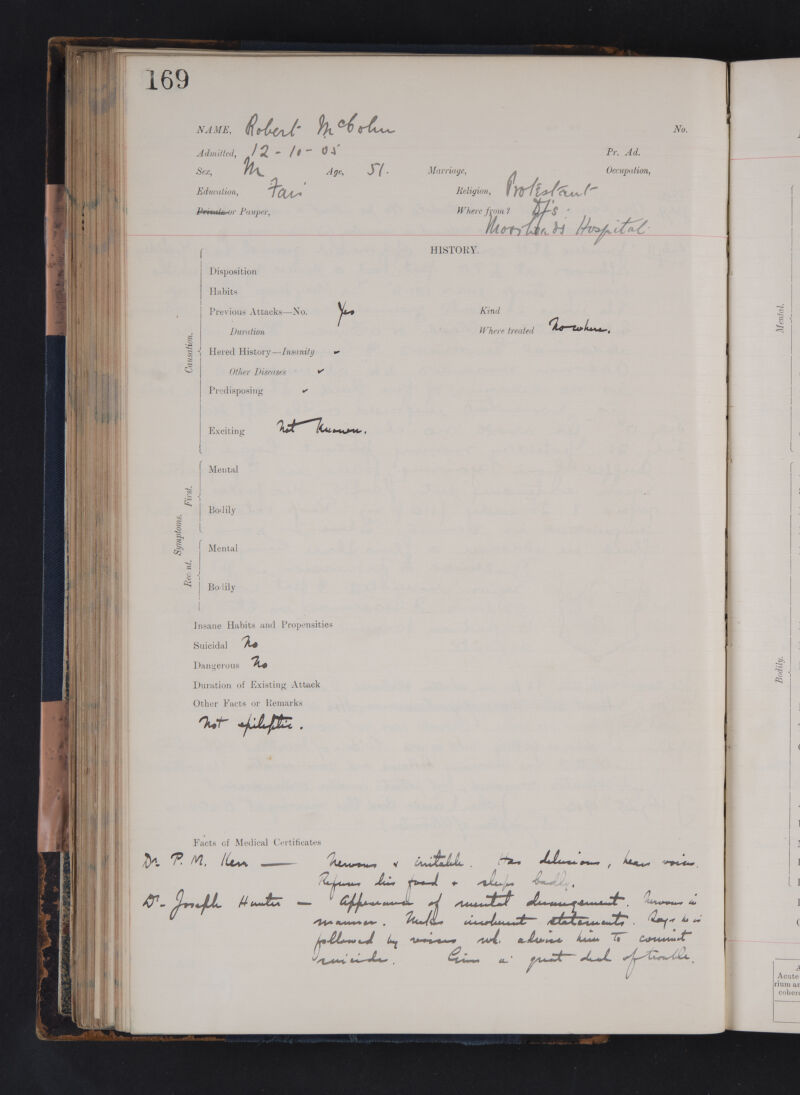 169
NAME, Robert McColm No.
Admitted, 12-10-05 Pr. Ad.
Sex, M Age, 51. Marriage, Occupation,
Education, Fair Religion, Protestant
Private or Pauper, Where from?
Hospital
HISTORY.
Disposition
Habits
Previous Attacks—No. Yes Kind
Duration Where treated Nowhere.
Causation.
Hered History—Insanity ✓
Other Diseases ✓
Predisposing ✓
Exciting Not Known.
Symptoms.
First.
Mental
Bodily
Recent.
Mental
Bodily
Insane Habits and Propensities
Suicidal No
Dangerous No
Duration of Existing Attack
Other Facts or Remarks
Not epileptic.
Facts of Medical Certificates
Dr. P. M. Kerr — Nervous & irritable. Has delusions, hears voices.
Refuses his food & sleeps badly.
Dr. Joseph Hunter — Appearance of mental derangement. Nervous in
manner. Makes incoherent statements. Says he is
followed by voices wh. advise him to commit
suicide. Gives a great deal of trouble.
Mental.
Bodily.
Acute
rium an
coheren